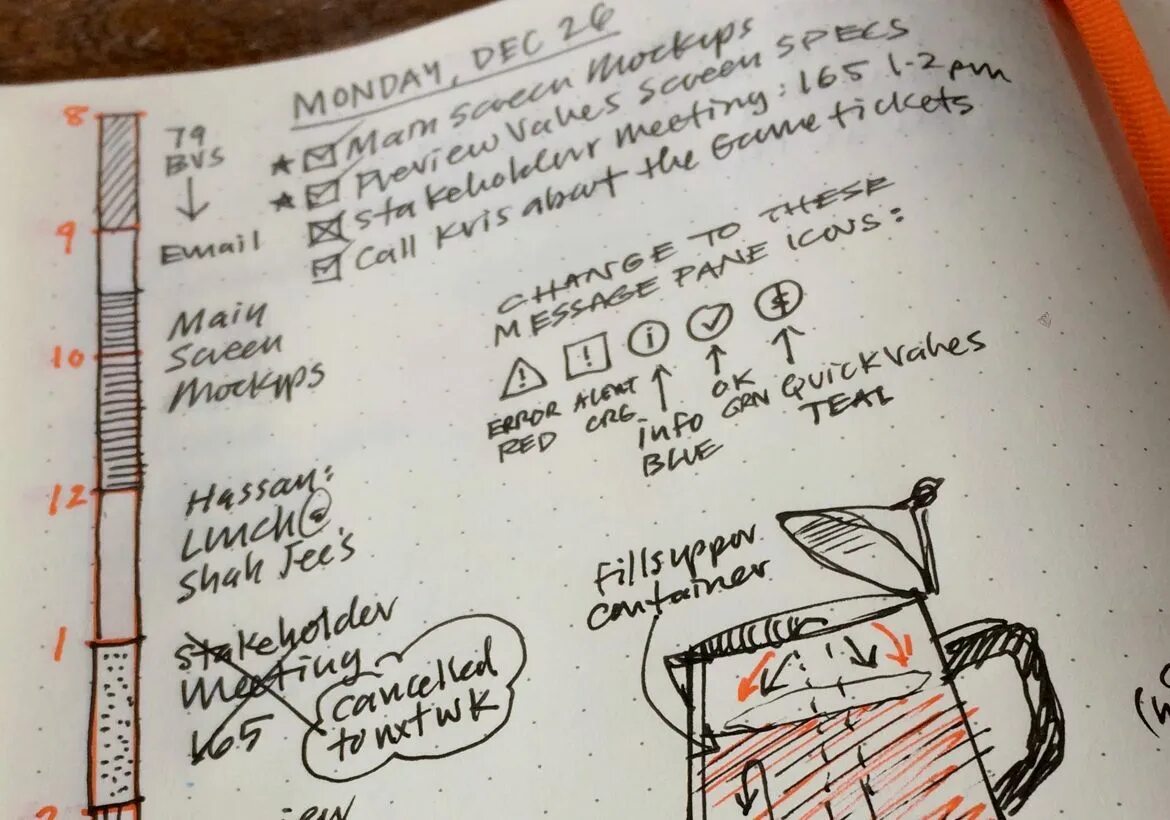 MONDAY, DEC 26
★ ☑ Main Screen Mockups
★ ☑ Preview Values Screen SPECS
☒ Stakeholder meeting: 165 1-2pm
☑ Call Kris about the Game tickets
8
79
BVS
↓
9
Email
10
Main
Screen
Mockups
12
Hassan:
Lunch @
Shah Jee's
1
Stakeholder
Meeting
165
cancelled
to nxt wk
CHANGE TO THESE
MESSAGE PANE ICONS:
! ! i ✓
ERROR
RED
ALERT
ORG
info
BLUE
OK
GRN
QUICK VALUES
TEAL
Fills upper
container